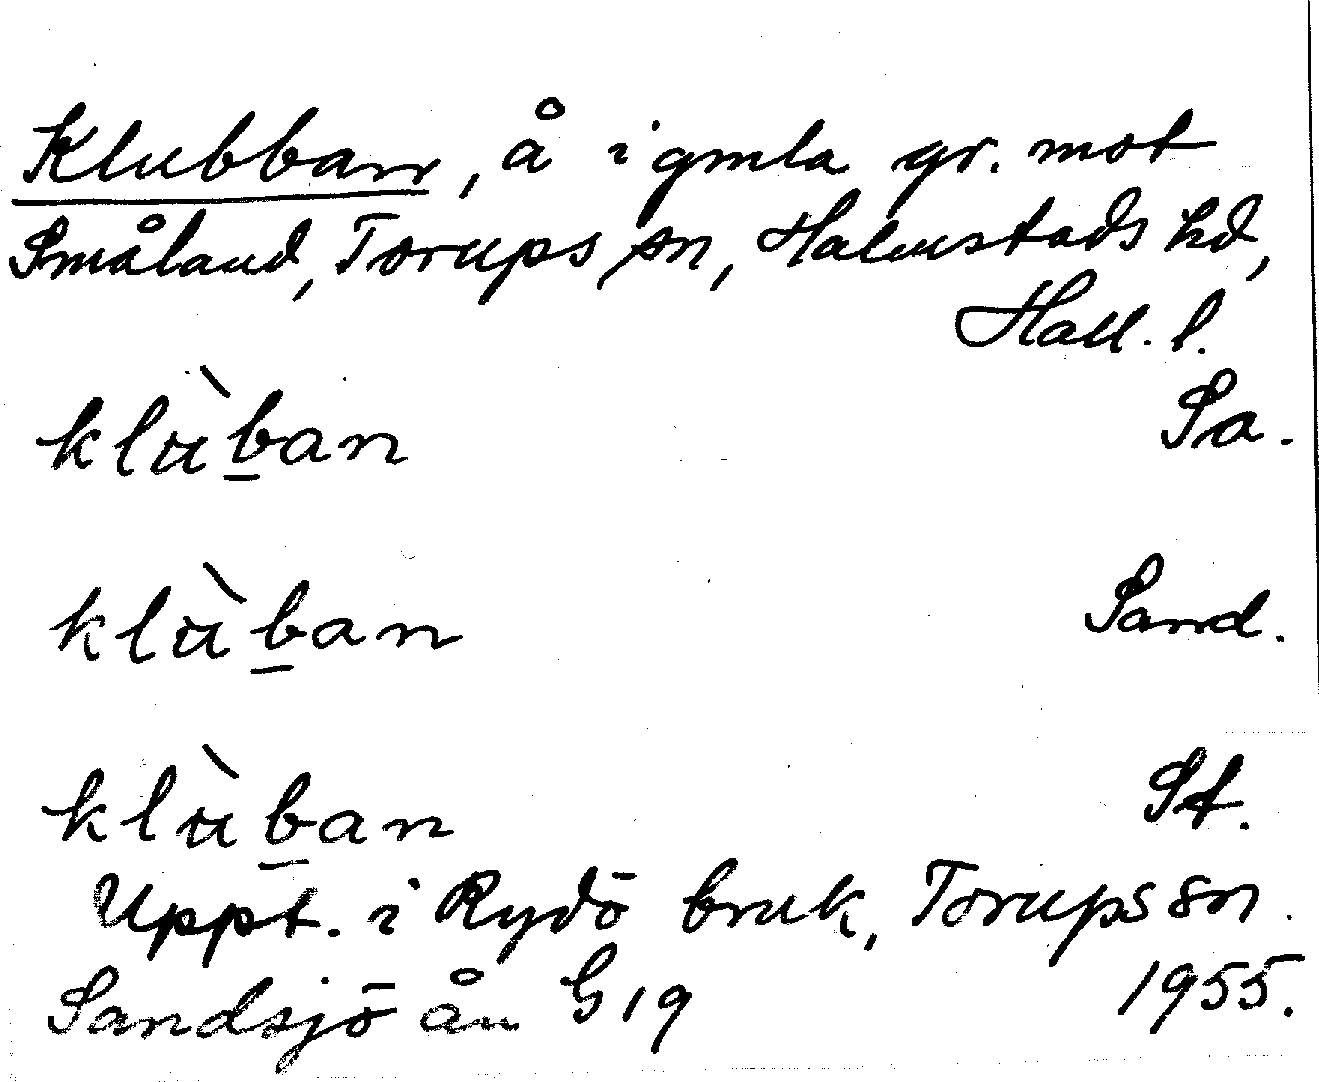 Klubban, å i gmla gr. mot
Småland, Torups sn, Halmstads hd,
Hall. l.
klùban Sa.
klùban Sand.
klùban St.
Uppt. i Rydö bruk, Torups sn.
Sandsjö ån G 19 1955.